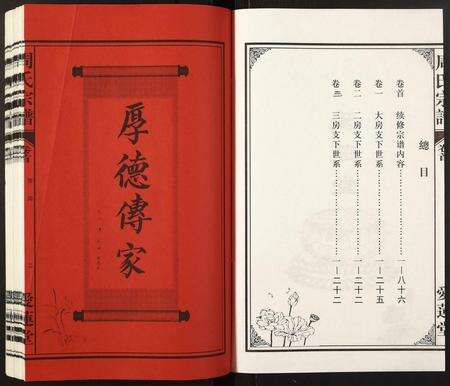 周氏宗譜
卷首
愛蓮堂
總目
卷首　续修宗谱内容………………一—八十六
卷一　大房支下世系………………一—二十五
卷二　二房支下世系………………一—二十二
卷三　三房支下世系………………一—二十二
厚德傳家
周氏宗譜
卷首
愛蓮堂